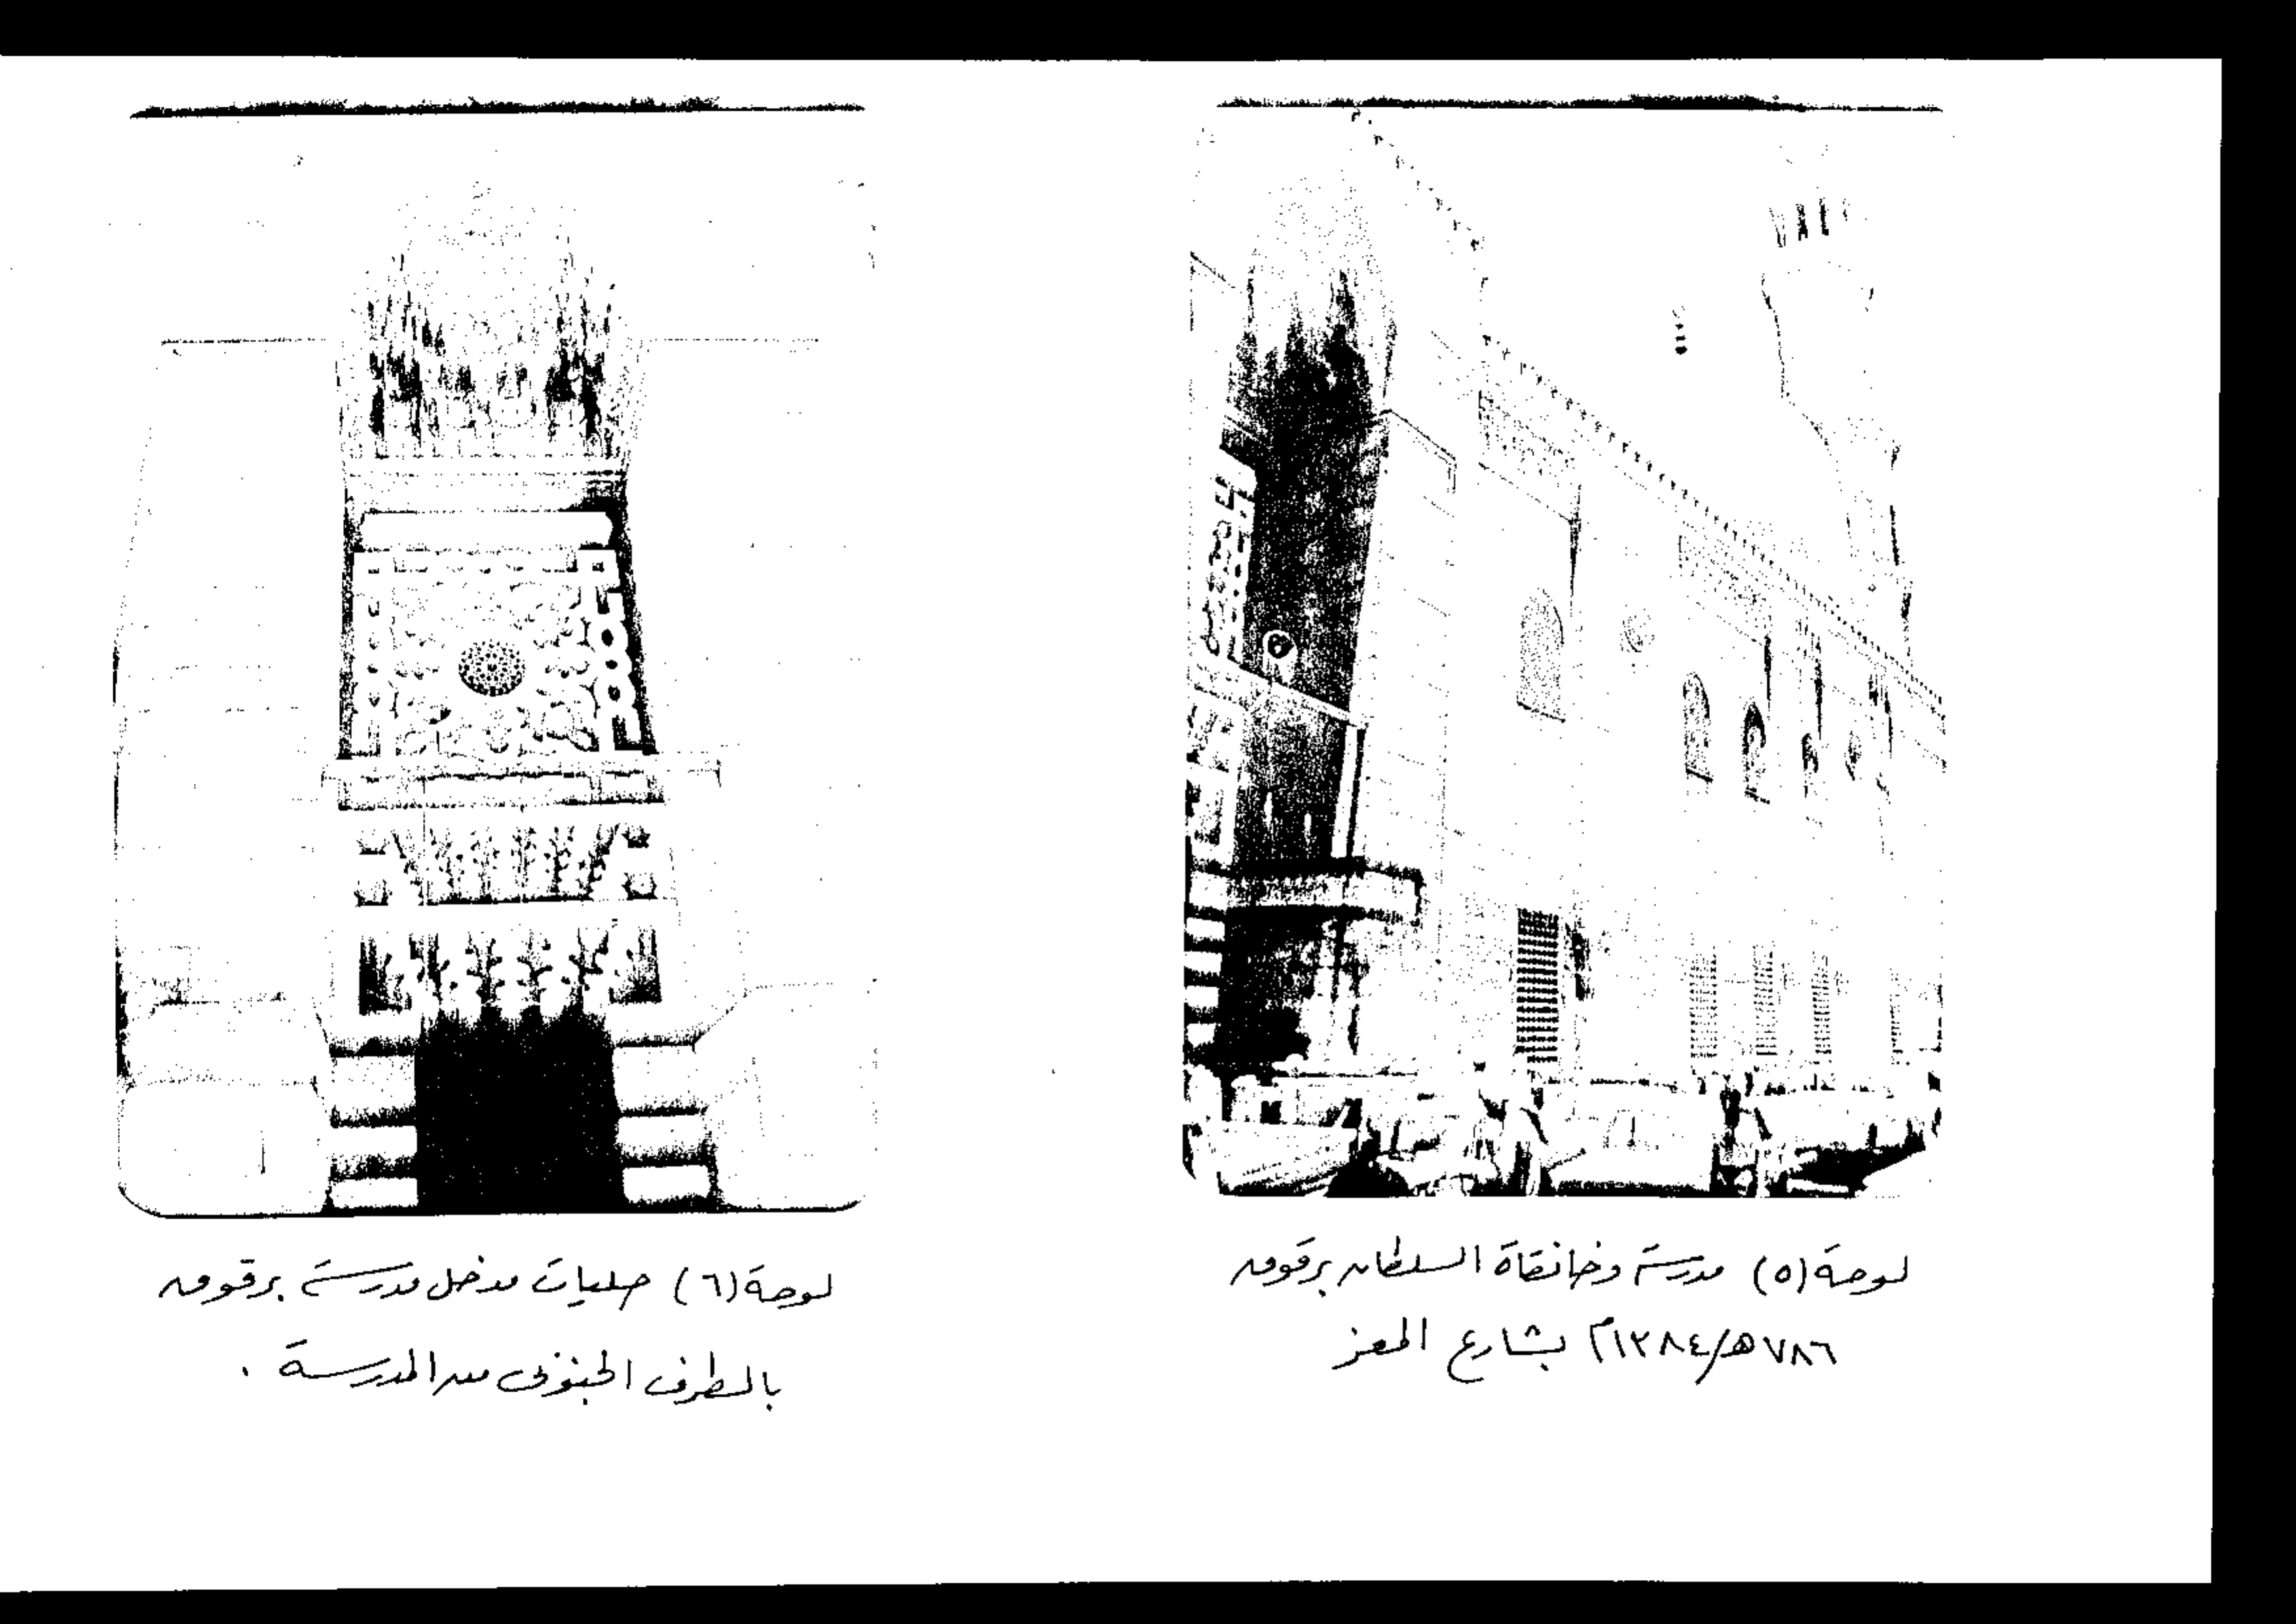 لوحة (٥) مدرسة وخانقاة السلطان برقوق
٧٨٦هـ/١٣٨٤م بشارع المعز
لوحة (٦) حليات مدخل مدرسة برقوق
بالطرف الجنوبى من المدرسة .